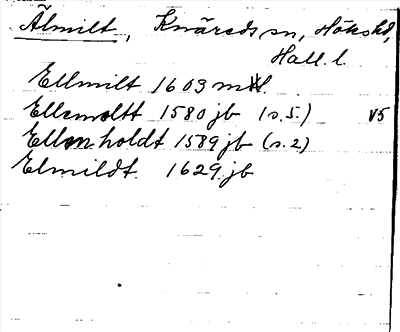 Älmilt, Knäreds sn, Höks hd,
Hall. l.
Ellmilt 1603 mtl.
Ellemoltt 1580 jb (s. 5.) V5
Ellenholdt 1589 jb (s. 2)
Elmildt. 1629 jb